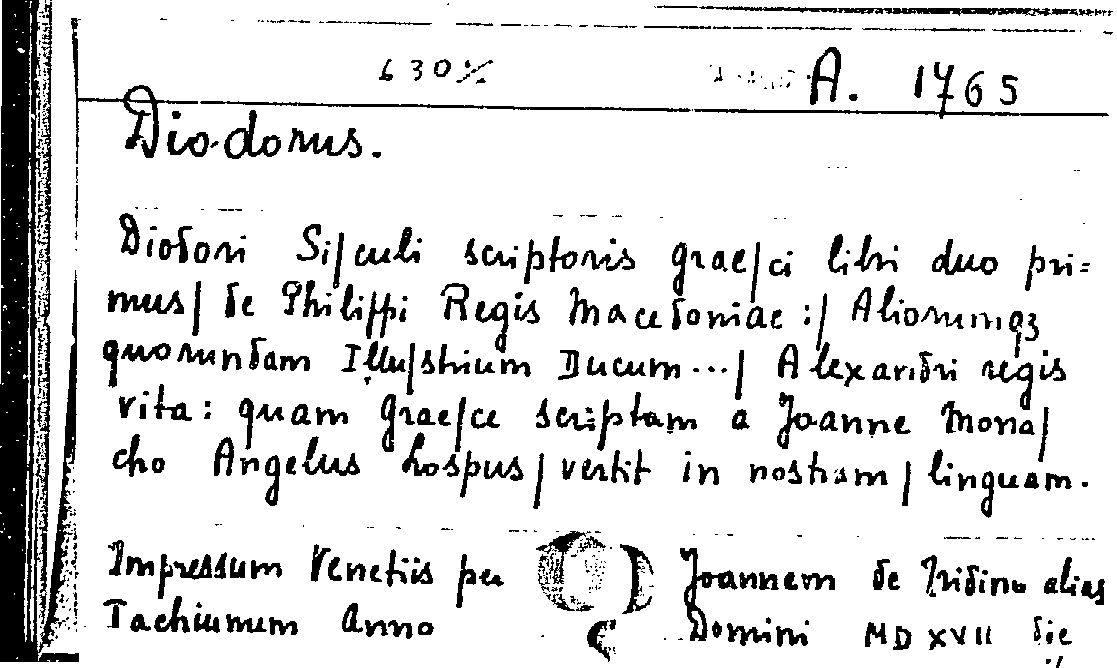 630% A. 1765
Diodorus.
Diodori Si/culi scriptoris grae/ci libri duo pri=
mus/ de Philippi Regis Macedoniae :/ Aliorumqz
quorundam Illu/strium Ducum.../ Alexandri regis
vita: quam grae/ce scriptam a Joanne Mona/
cho Angelus hospus/ vertit in nostram/ linguam.
Impressum Venetiis per Joannem de Tridino alias
Tachiunum Anno Domini MDXVII die